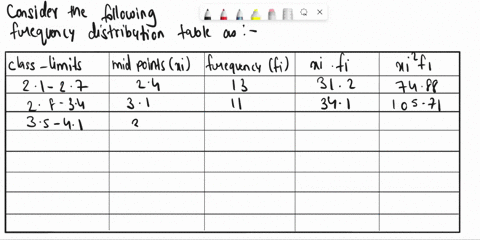 Consider the following
frequency distribution table as :-
class-limits mid points (xi) frequency (fi) xi.fi xi²fi
2.1-2.7 2.4 13 31.2 74.88
2.8-3.4 3.1 11 34.1 105.71
3.5-4.1